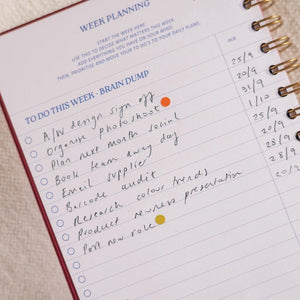 WEEK PLANNING
START THE WEEK HERE.
USE THIS TO DECIDE WHAT MATTERS THIS WEEK.
ADD EVERYTHING YOU HAVE ON YOUR MIND.
THEN, PRIORITISE AND MOVE YOUR TO DO'S TO YOUR DAILY PLANS.
TO DO THIS WEEK - BRAIN DUMP
DUE
A/W design sign off 25/9
Organise photoshoot 20/9
Plan next month social 31/9
Book team away day 1/10
Email supplier 25/9
Barcode audit 20/9
Research colour trends 28/9
Product newness presentation 28/9
Post new role